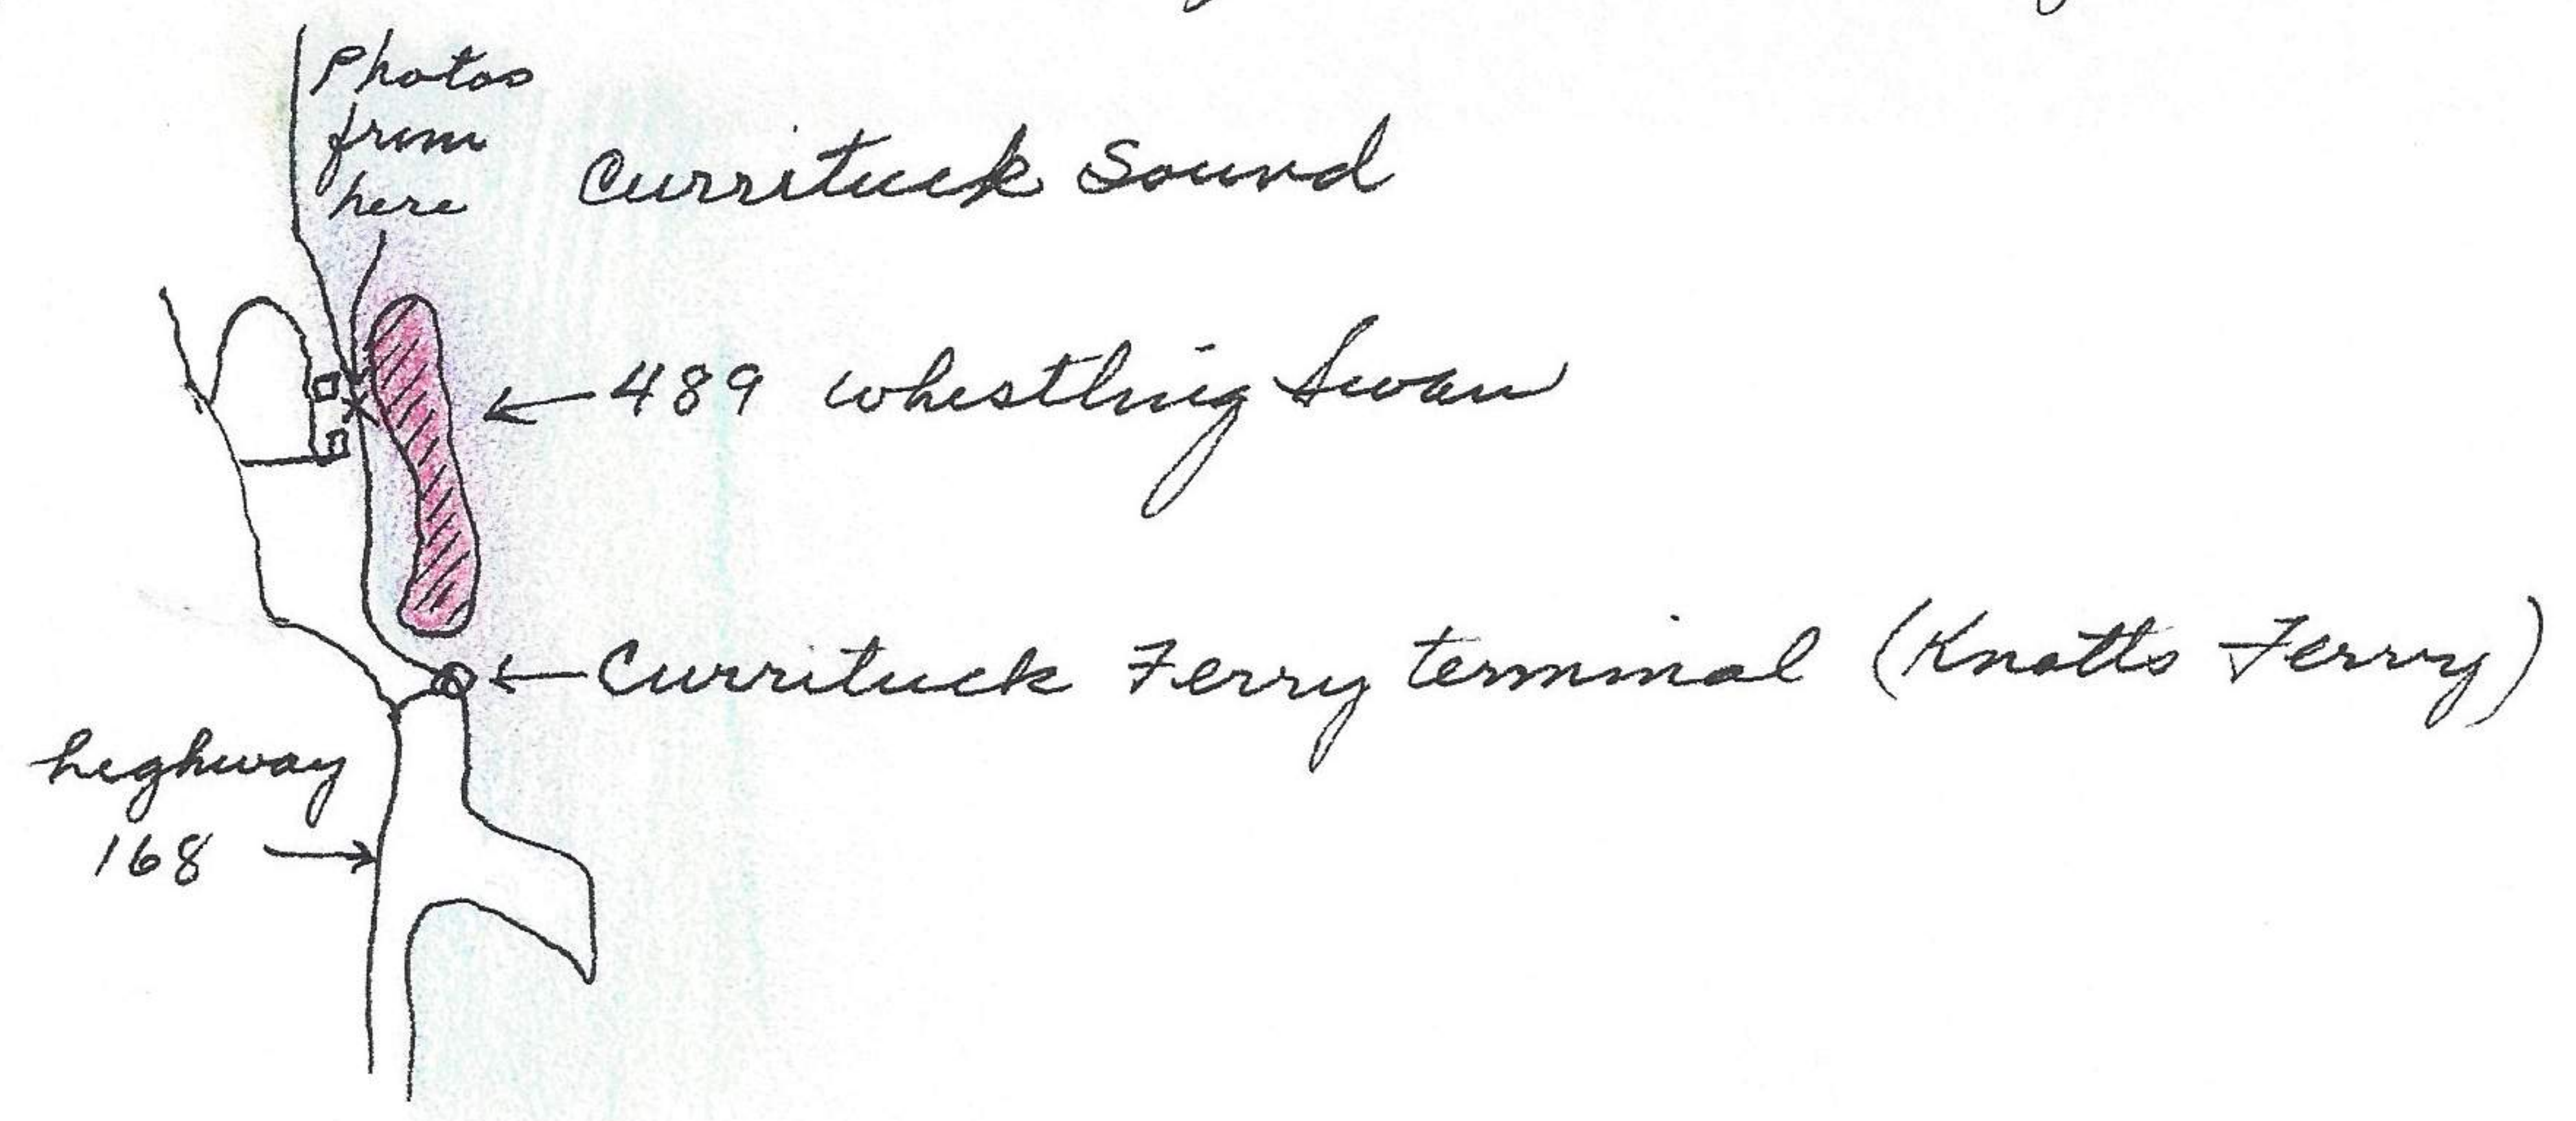 Photos
from
here
Currituck Sound
489 whistling Swan
Currituck Ferry terminal (Knotts Ferry)
highway
168